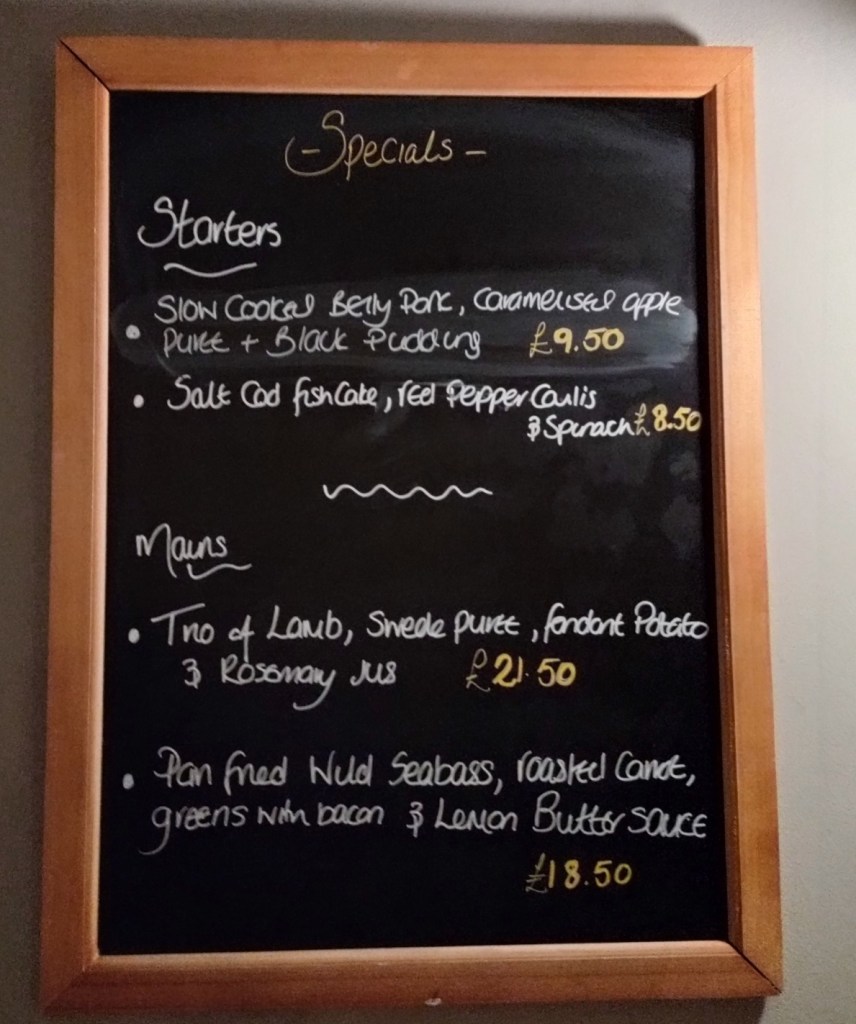 - Specials -
Starters
• Slow Cooked Belly Pork, Caramelised apple
puree + Black Pudding £9.50
• Salt Cod fishcake, red Pepper Coulis
& Spinach £8.50
Mains
• Trio of Lamb, Swede puree, fondant Potato
& Rosemary Jus £21.50
• Pan fried Wild Seabass, roasted Carrot,
greens with bacon & Lemon Butter sauce
£18.50